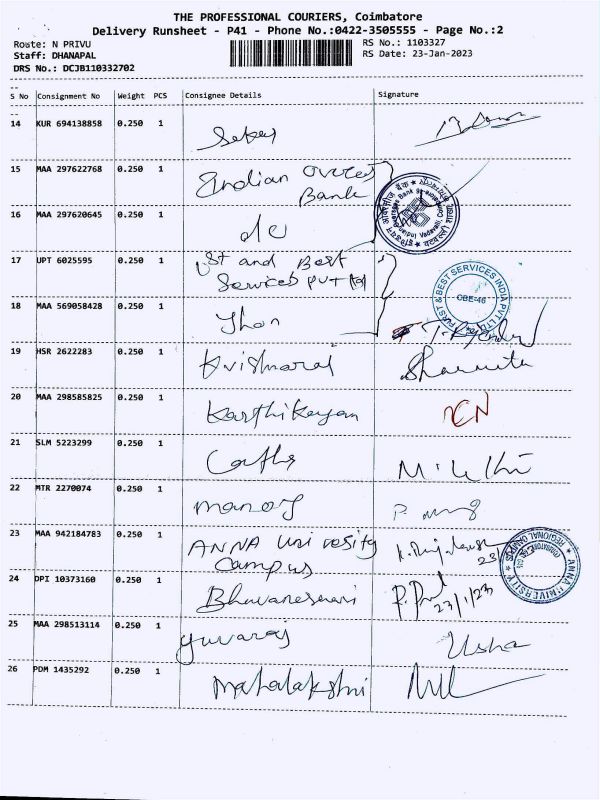 THE PROFESSIONAL COURIERS, Coimbatore
Delivery Runsheet - P41 - Phone No.:0422-3505555 - Page No.:2
Route: N PRIVU
RS No.: 1103327
Staff: DHANAPAL
RS Date: 23-Jan-2023
DRS No.: DCJB110332702
S No Consignment No Weight PCS Consignee Details Signature
14 KUR 694138858 0.250 1
15 MAA 297622768 0.250 1 Indian Overses
Bank
16 MAA 297620645 0.250 1
17 UPT 6025595 0.250 1 1st and Best
Services Pvt ltd
FIRST & BEST SERVICES INDIA PVT LTD
CBE-46
18 MAA 569058428 0.250 1
19 HSR 2622283 0.250 1
20 MAA 298585825 0.250 1 Karthikeyan
21 SLM 5223299 0.250 1
22 MTR 2270074 0.250 1 manoj
23 MAA 942184783 0.250 1 ANNA Uni vesity
Campus
ANNA UNIVERSITY
REGIONAL CAMPUS
24 DPI 10373160 0.250 1 Bhuvaneswari
23/1/23
25 MAA 298513114 0.250 1 yuvaraj Usha
26 PDM 1435292 0.250 1 Mahalakshmi